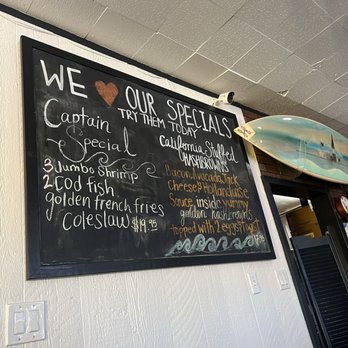 WE ❤ OUR SPECIALS
TRY THEM TODAY
Captain
Special
3 Jumbo Shrimp
2 Cod fish
golden french fries
coleslaw $19.95
California Stuffed
HASHBROWNS
Bacon, Avocado, Jack
Cheese & Hollandaise
Sauce inside yummy
golden hashbrowns
Topped with 2 eggs